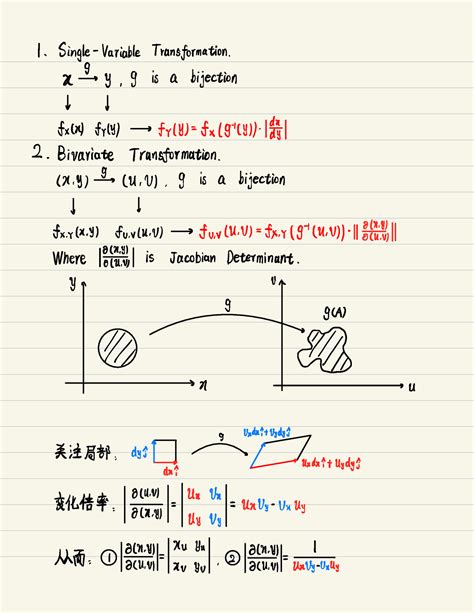 1. Single-Variable Transformation.
x →g y, g is a bijection
↓ ↓
fx(x) fY(y) → fY(y) = fX(g⁻¹(y))·|dx/dy|
2. Bivariate Transformation.
(x,y) →g (u,v), g is a bijection
↓ ↓
fX,Y(x,y) fU,V(u,v) → fU,V(u,v) = fX,Y(g⁻¹(u,v))·||∂(x,y)/∂(u,v)||
Where |∂(x,y)/∂(u,v)| is Jacobian Determinant.
y v
g g(A)
x u
关注局部: dyĵ dxî g Vxdxî+Vydyĵ Uxdxî+Uydyĵ
变化倍率: |∂(u,v)/∂(x,y)| = |Ux Vx; Uy Vy| = UxVy-VxUy
从而: ①|∂(x,y)/∂(u,v)| = |xu yu; xv yv|, ②|∂(x,y)/∂(u,v)| = 1/(UxVy-VxUy)